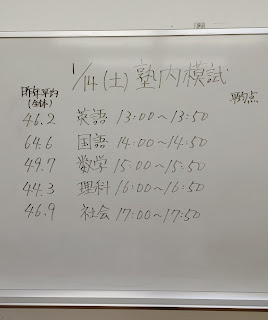 1/14(土) 塾内模試
昨年平均
(全体)
平均点
46.2 英語 13:00~13:50
64.6 国語 14:00~14:50
49.7 数学 15:00~15:50
44.3 理科 16:00~16:50
46.9 社会 17:00~17:50